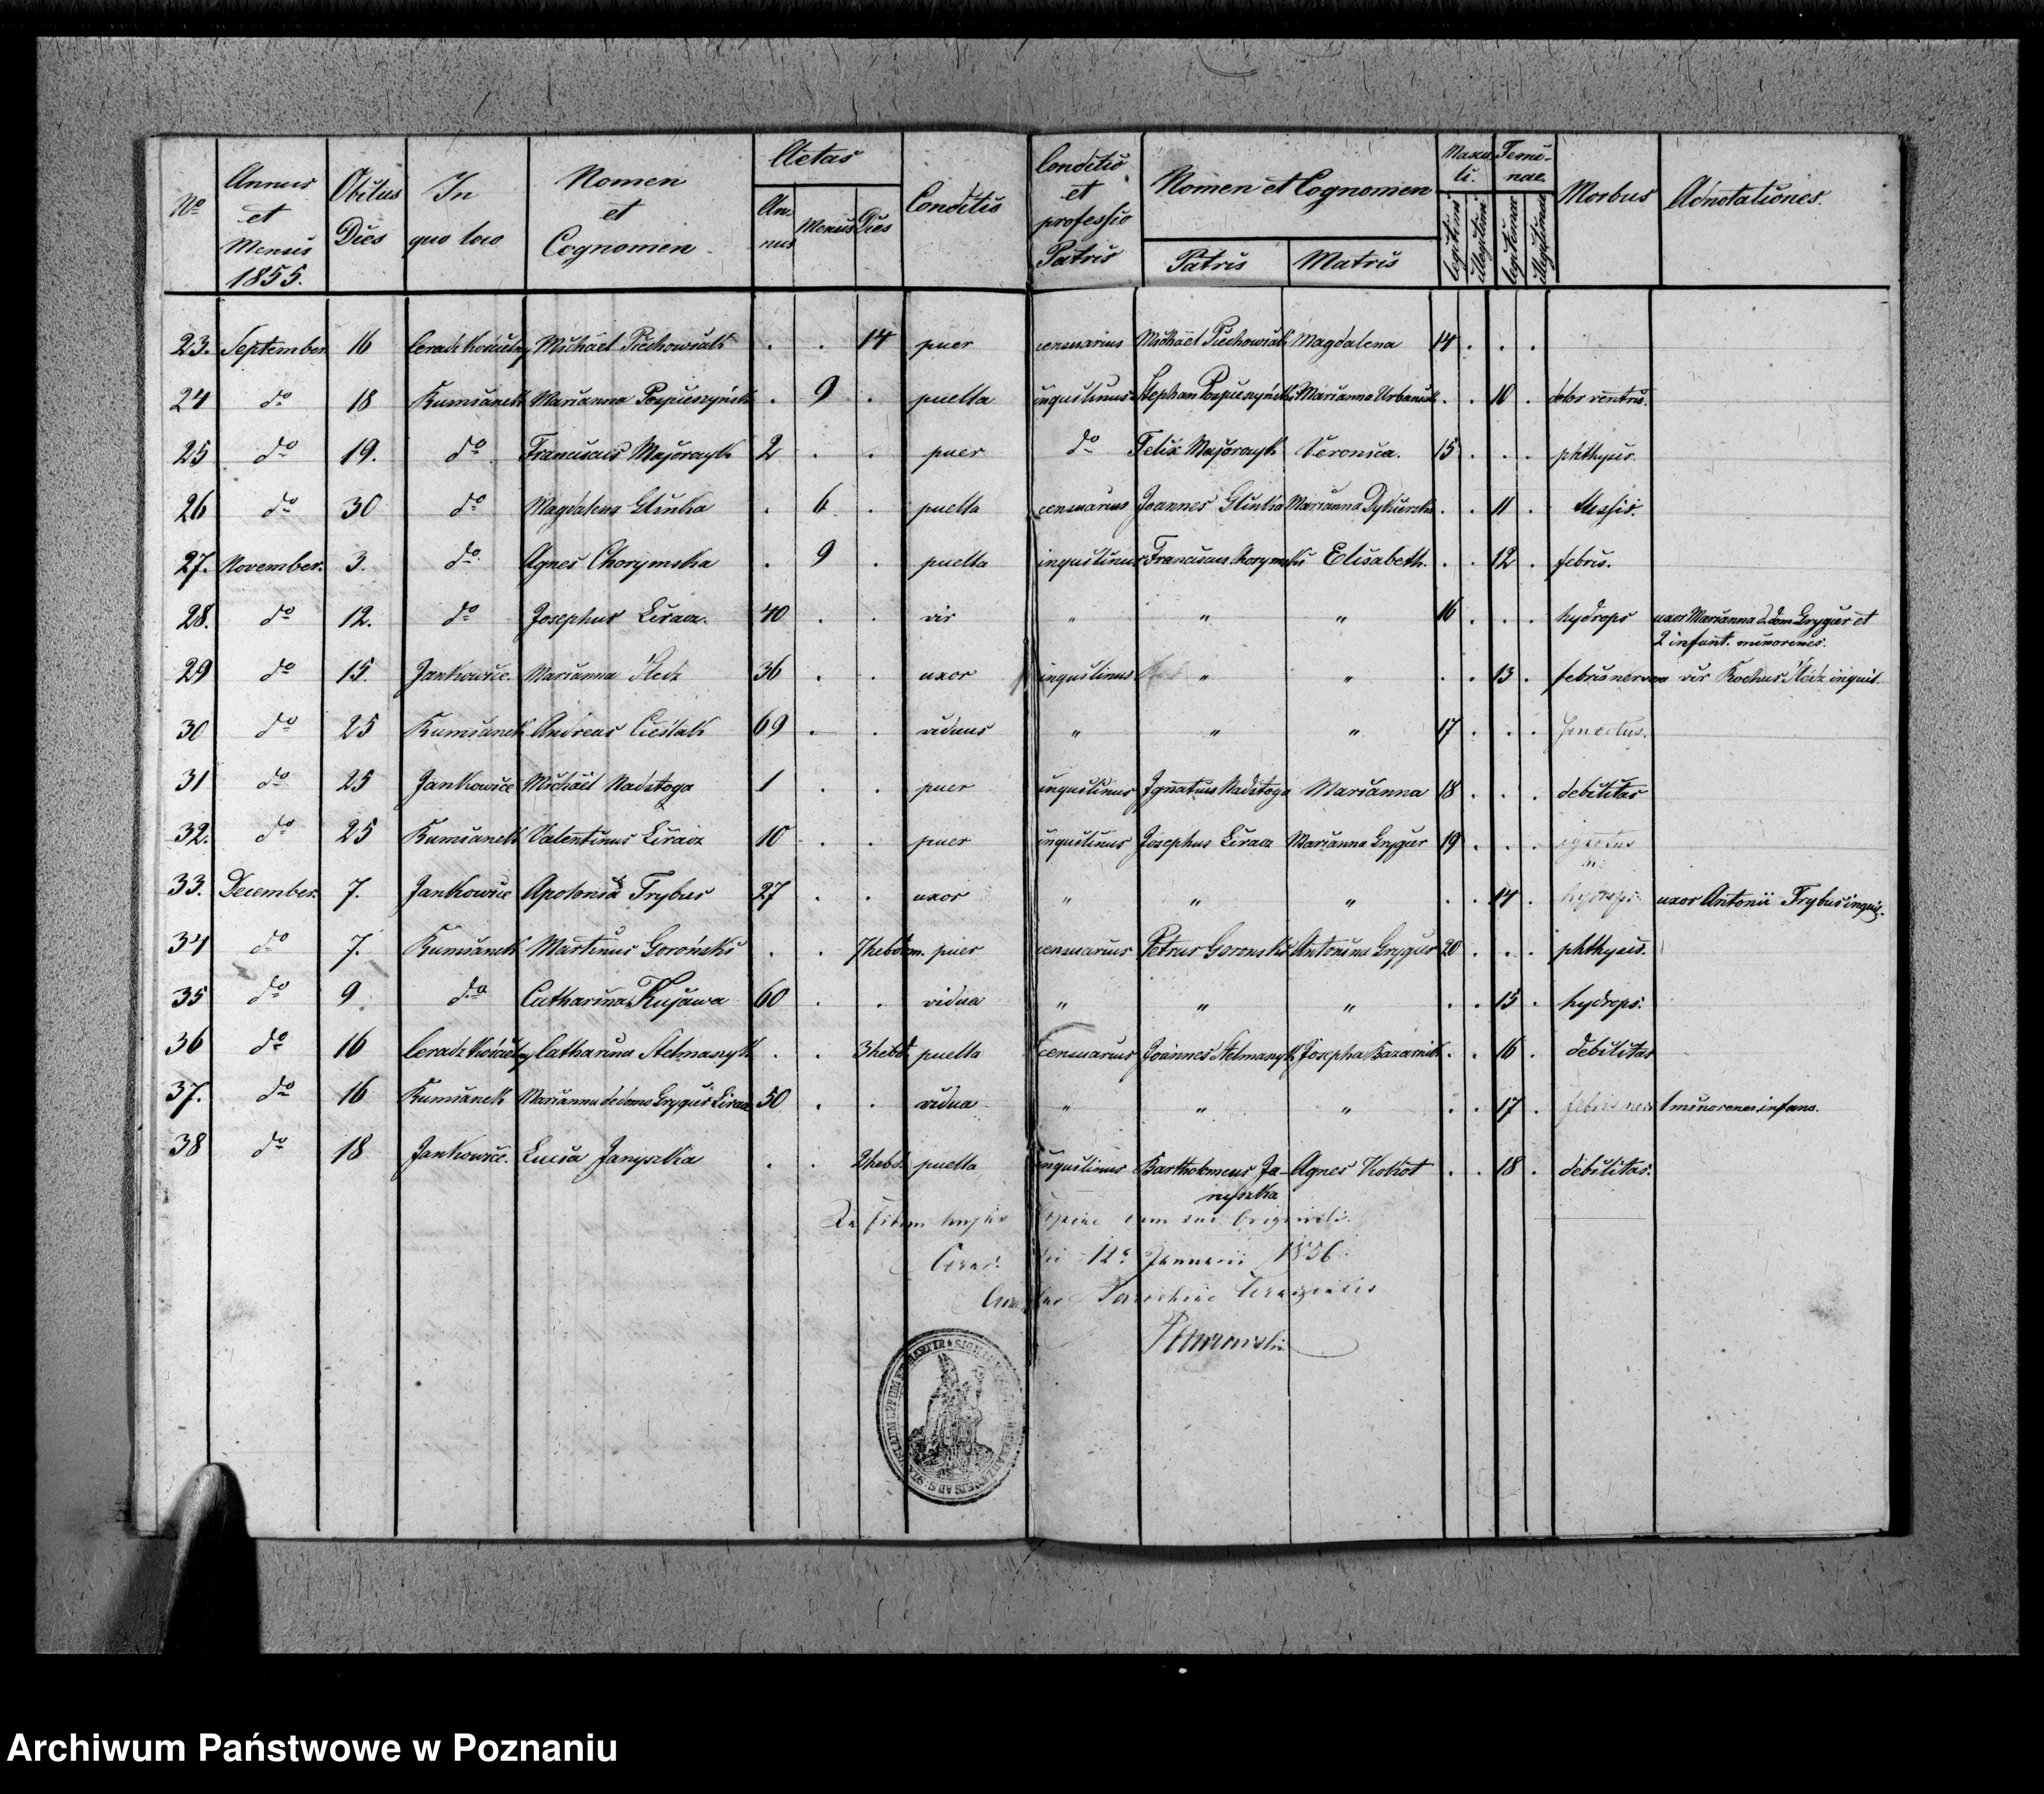 No Annus et Mensis 1855. Obitus Dies In quo loco Nomen et Cognomen Aetas Annus Mensis Dies Conditio Conditio et professio Patris Nomen et Cognomen Patris Matris Masculi. legitimi illegitimi Feminae. legitimae illegitimae Morbus Adnotationes.
23. September 16 Ceradz Kościelny Michael Piechowiak . . 14 puer censuarius Michael Piechowiak Magdalena 14 . . .
24 do 18 Kumianek Marianna . 9 . puella inquilinus Stephan Marianna Urbaniak . . 10 . dolor ventris.
25 do 19. do Franciscus Majorczyk 2 . . puer do Felix Majorczyk Veronica. 15 . . . phthysis.
26 do 30 do Magdalena Glinka . 6 . puella censuarius Joannes Glinka Marianna . . 11 . tussis.
27. November. 3. do Agnes Chorymska . 9 . puella inquilinus Franciscus Chorymski Elisabeth. . . 12 . febris.
28. do 12. do Josephus Liracz. 40 . . vir " " " 16 . . . hydrops uxor Marianna d. dom Grygier et
2 infant. minorenes.
29 do 15. Jankowice. Marianna Śledz 36 . . uxor inquilinus " " . . 13 . febris nervosa vir Rochus Śledz inquil.
30 do 25 Kumianek Andreas Cieślak 69 . . viduus " " " 17 . . .
31 do 25 Jankowice Michael Nadstoga 1 . . puer inquilinus Ignatius Nadstoga Marianna 18 . . . debilitas
32. do 25 Kumianek Valentinus Liracz 10 . . puer inquilinus Josephus Liracz Marianna Grygier 19 . . .
33. December. 7. Jankowice Apolonia Trybus 27 . . uxor " " " . . 14 . hydrops. uxor Antonii Trybus inquil.
34 do 7. Kumianek Martinus Goroński . . 7 hebdom. puer censuarius Petrus Goronski Antonina Grygier 20 . . . phthysis.
35 do 9 do Catharina Kujawa 60 . . vidua " " " . . 15 . hydrops.
36 do 16 Ceradz Kościelny Catharina Stelmaszyk . . 3 hebd. puella censuarius Joannes Stelmaszyk Josepha Kazmierczak . . 16 . debilitas
37. do 16 Kumianek Marianna de domo Grygier Liracz 50 . . vidua " " " . . 17 . febris ner. 1 minorenes infans.
38 do 18 Jankowice. Lucia Janyszka . . 2 hebd. puella inquilinus Bartholomeus Ja- Agnes Kokot . . 18 . debilitas.
nyszka
In fidem hujus Copiae cum suo Originali.
Cerad. die 12a Januarii 1856.
Parochiae Ceradzensis
Archiwum Państwowe w Poznaniu